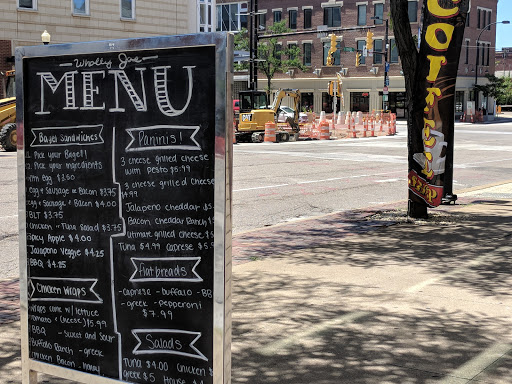 Wholly Joe
MENU
Bagel Sandwiches
1. Pick your Bagel!
2. Pick your ingredients
Egg $3.50
Egg + Sausage or Bacon $3.75
Egg + Sausage + Bacon $4.00
BLT $3.75
Chicken or Tuna Salad $3.75
Spicy Apple $4.00
Jalapeno Veggie $4.25
BBQ $4.25
Chicken Wraps
Wraps come w/ lettuce
Tomato + Cheese $5.99
BBQ - Sweet and Sour
Buffalo Ranch - greek
Chicken Bacon - honey
Paninis!
3 cheese grilled cheese
with pesto $5.99
3 cheese grilled cheese
4.99
Jalapeno cheddar $5
Bacon cheddar Ranch $
Ultimate grilled cheese $5
Tuna $4.99 Caprese $5
Flatbreads
- Caprese - buffalo - BB
- greek - Pepperoni
$7.99
Salads
Tuna $4.00 Chicken $
greek $5 House $4
COFFEE